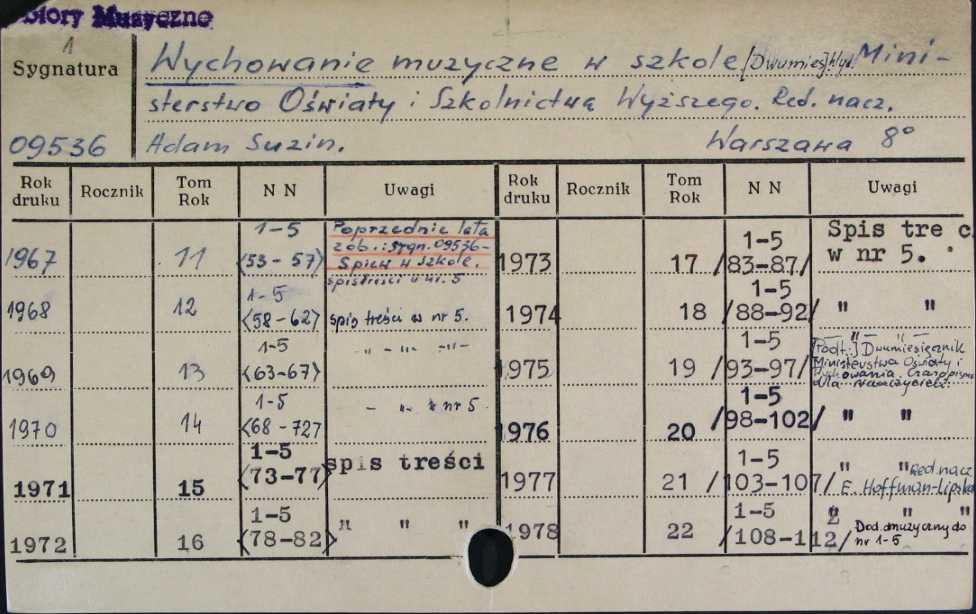 Zbiory Muzyczne
1
Sygnatura
09536
Wychowanie muzyczne w szkole [Dwumies.] Wyd. Mini-
sterstwo Oświaty i Szkolnictwa Wyższego. Red. nacz.
Adam Suzin. Warszawa 8°
Rok druku Rocznik Tom Rok N N Uwagi Rok druku Rocznik Tom Rok N N Uwagi
1967 11 1-5 (53-57) Poprzednie lata zob.: sygn. 09536- Śpiew w szkole. spis treści w nr. 5
1968 12 1-5 (58-62) spis treści w nr 5.
1969 13 1-5 (63-67) -„- „- -„-
1970 14 1-5 (68-72) - „- „ nr 5
1971 15 1-5 (73-77) spis treści
1972 16 1-5 (78-82) " " "
1973 17 1-5 /83-87/ Spis tre c w nr 5.
1974 18 1-5 /88-92/ " "
1975 19 1-5 /93-97/ " " [Podt.:] Dwumiesięcznik Ministerstwa Oświaty i Wychowania. Czasopismo dla nauczycieli.
1976 20 1-5 /98-102/ " "
1977 21 1-5 /103-107/ " " Red. nacz E. Hoffman-Lipska
1978 22 1-5 /108-112/ " " " Dod. muzyczny do nr 1-5